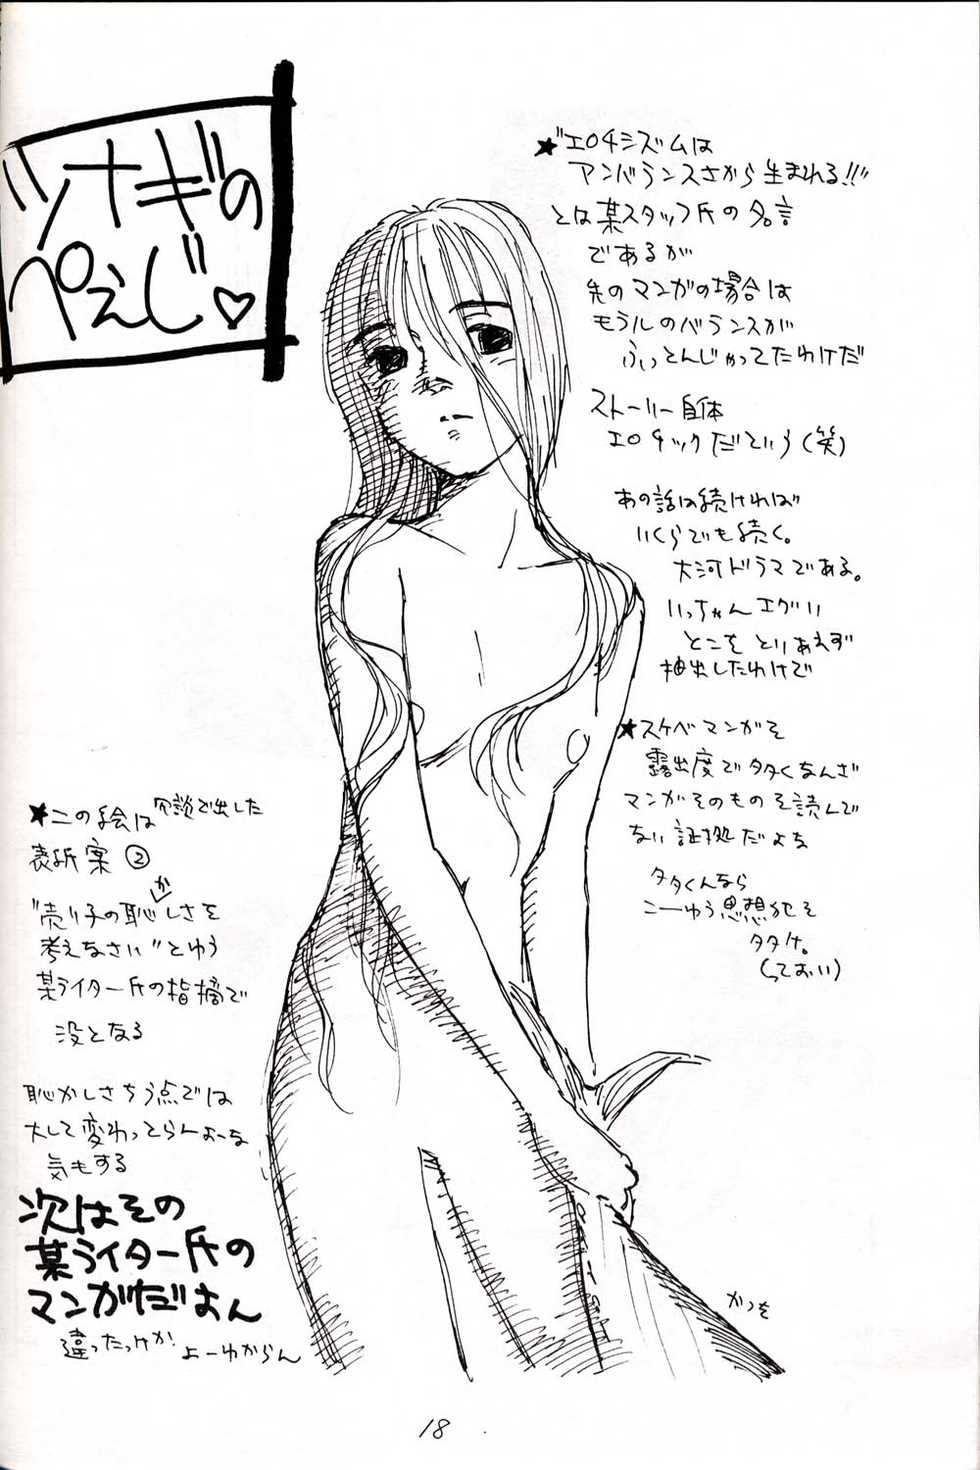 ツナギの
ぺえじ♡
★"エロチシズムは
アンバランスさから生まれる!!"
とは某スタッフ氏の名言
であるが
先のマンガの場合は
モラルのバランスが
ふっとんじゃってたわけだ
ストーリー自体
エロチックだという(笑)
あの話は続ければ
いくらでも続く。
大河ドラマである。
いっちゃんエグい
とこをとりあえず
抽出したわけで
★スケベマンガを
露出度でタタくなんざ
マンガそのものを読んで
ない証拠だよな
タタくんなら
こーゆう思想犯を
タタけ。
(っておい)
★この絵は冗談で出した
表紙案②
"売り子の恥かしさを
考えなさい"とゆう
某ライター氏の指摘で
没となる
恥かしさちう点では
大して変わってらんよーな
気もする
次はその
某ライター氏の
マンガだよん
違ったっけか よーわからん
かつを
18